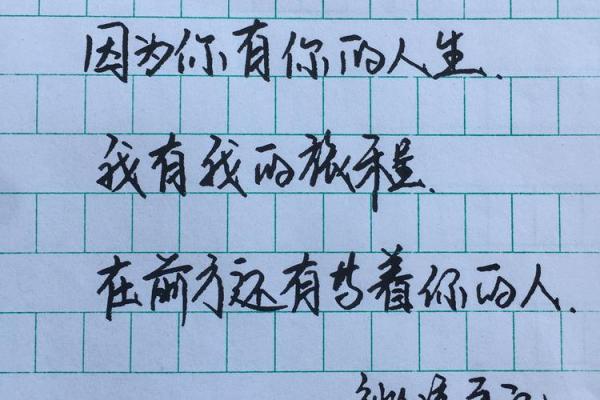 因为你有你的人生、
我有我的旅程、
在前方还有等着你的人、